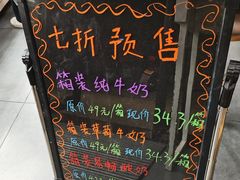 七折预售
箱装纯牛奶
原价49元/箱 现价34.3/箱
箱装草莓牛奶
原价49元/箱 现价34.3/箱
箱装
酸奶